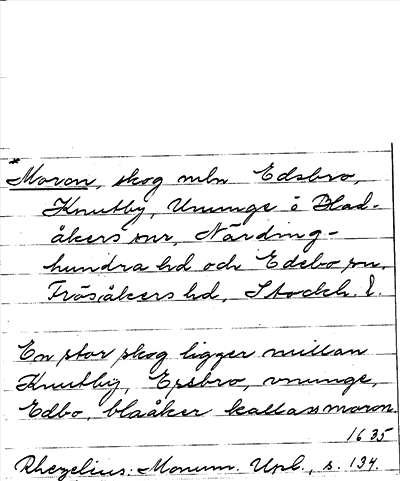 *Moron, skog mln Edsbro,
Knutby, Ununge o Blad-
åkers snr, Närding-
hundra hd och Edebo sn,
Frösåkers hd, Stockh. l.
En stor skog ligger millan
Knutby, Essbro, vnunge,
Edbo, blaåker kallass moron.
1635
Rhezelius: Monum. Upl., s. 134.